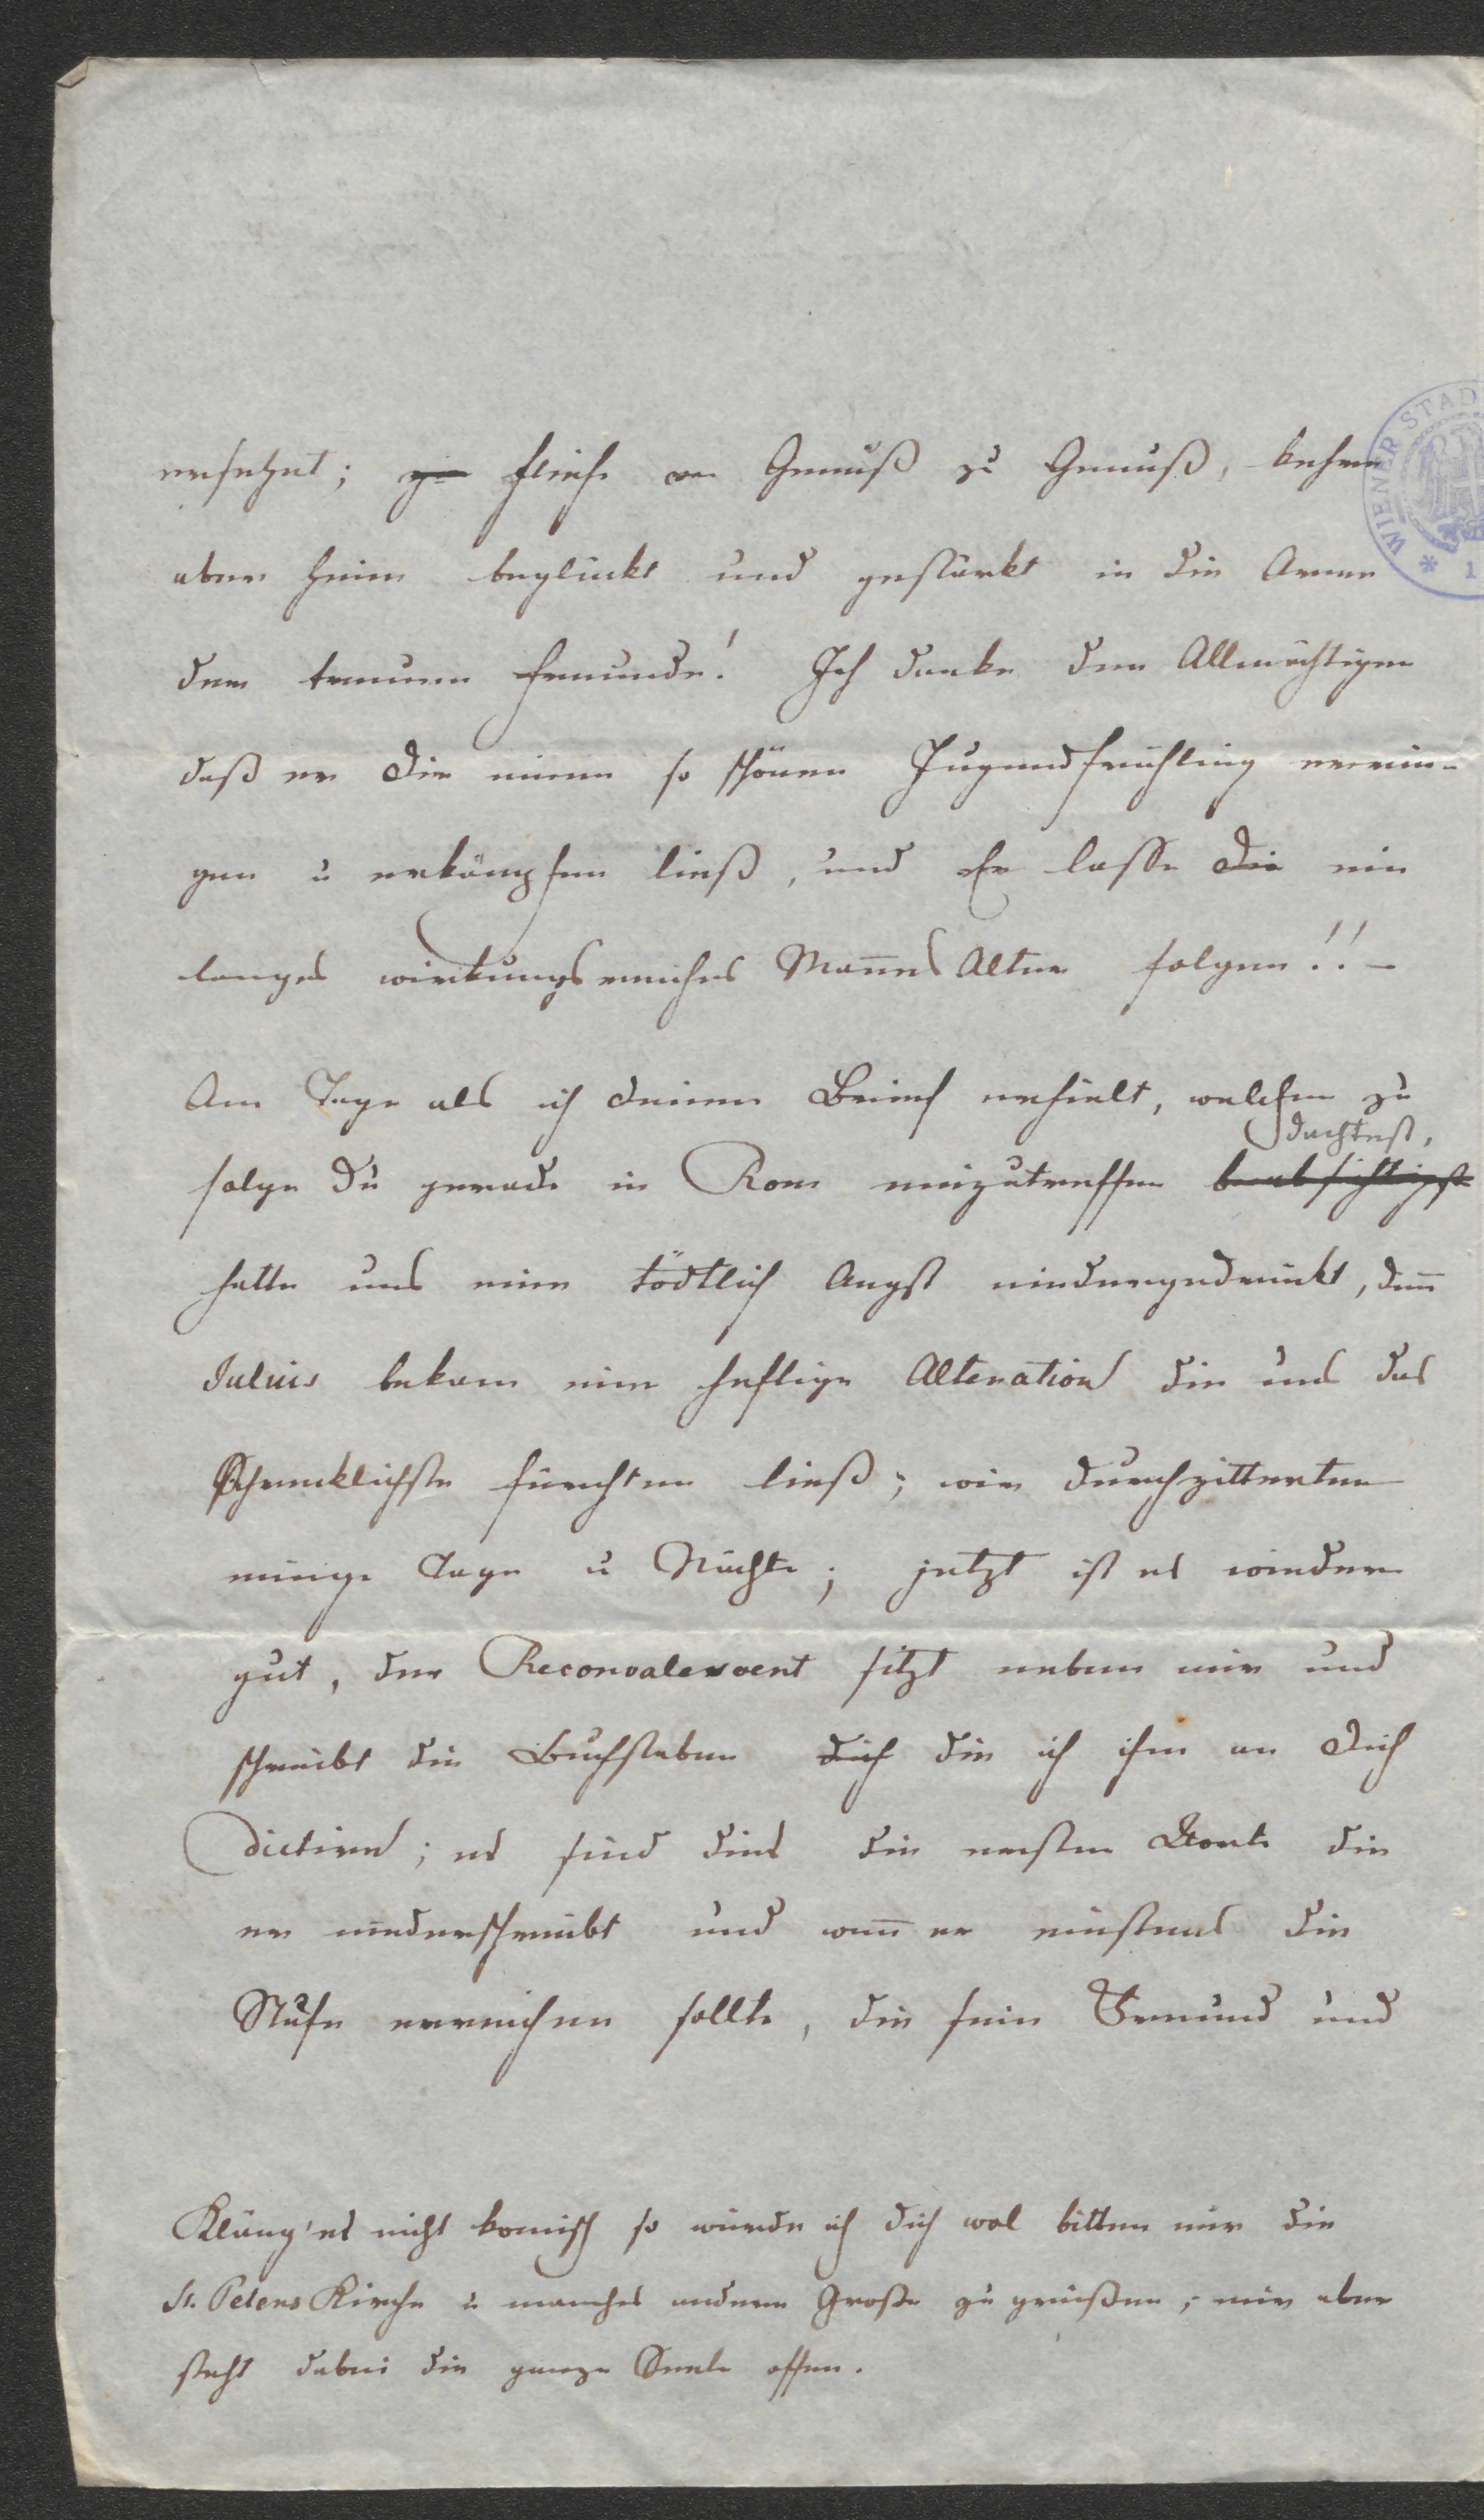 ersehnt; fliehe von Genuß zu Genuß, kehre
aber heim beglückt und gestärkt in die Arme
dem treuen Freunde! Ich danke dem Allmächtigen
daß er Dir einen so schönen Jugendfrühling errin-
gen u erkämpfen ließ, und Er lasse Dir ein
langes wirkungsreiches Mannes Alter folgen!! –
Am Tage als ich deinen Brief erhielt, welchem zu
dachtest,
folge Du gerade in Rom einzutreffen beabsichtigst
hatte uns eine tödtlich Angst niedergedrückt, den̄
Julius bekam eine heftige Alteration die uns das
Schrecklichste fürchten ließ; wir durchzitterten
einige Tage u Nächte; jetzt ist es wieder
gut, der Reconvalescent sitzt neben mir und
schreibt die Buchstaben dich die ich ihm an Dich
dictire; es sind dies die ersten Worte die
er niederschreibt und wen̄ er einstens die
Stufe erreichen sollte, die sein Freund und
Kläng' es nicht komisch so würde ich dich wol bitten mir die
St. Peters Kirche u manches andere Große zu grüßen; mir aber
steht dabei die ganze Seele offen.
WIENER STAD
* 1